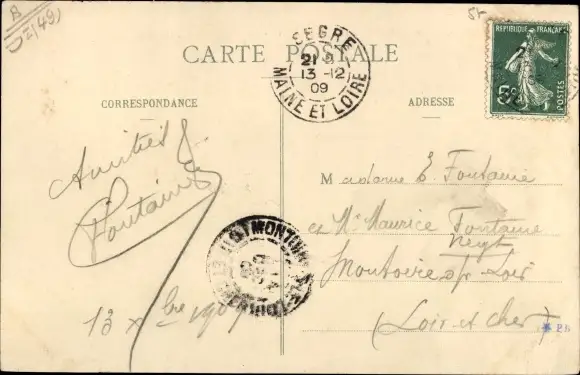 B
(49)
5f
CARTE POSTALE
SEGRÉ
21
13 -12
09
MAINE ET LOIRE
REPUBLIQUE FRANÇAISE
5c
POSTES
CORRESPONDANCE
ADRESSE
Amitiés
Fontaine
13 Xbre 1909
Madame E. Fontaine
Mr Maurice Fontaine
Montoire s/ Loir
(Loir et cher)